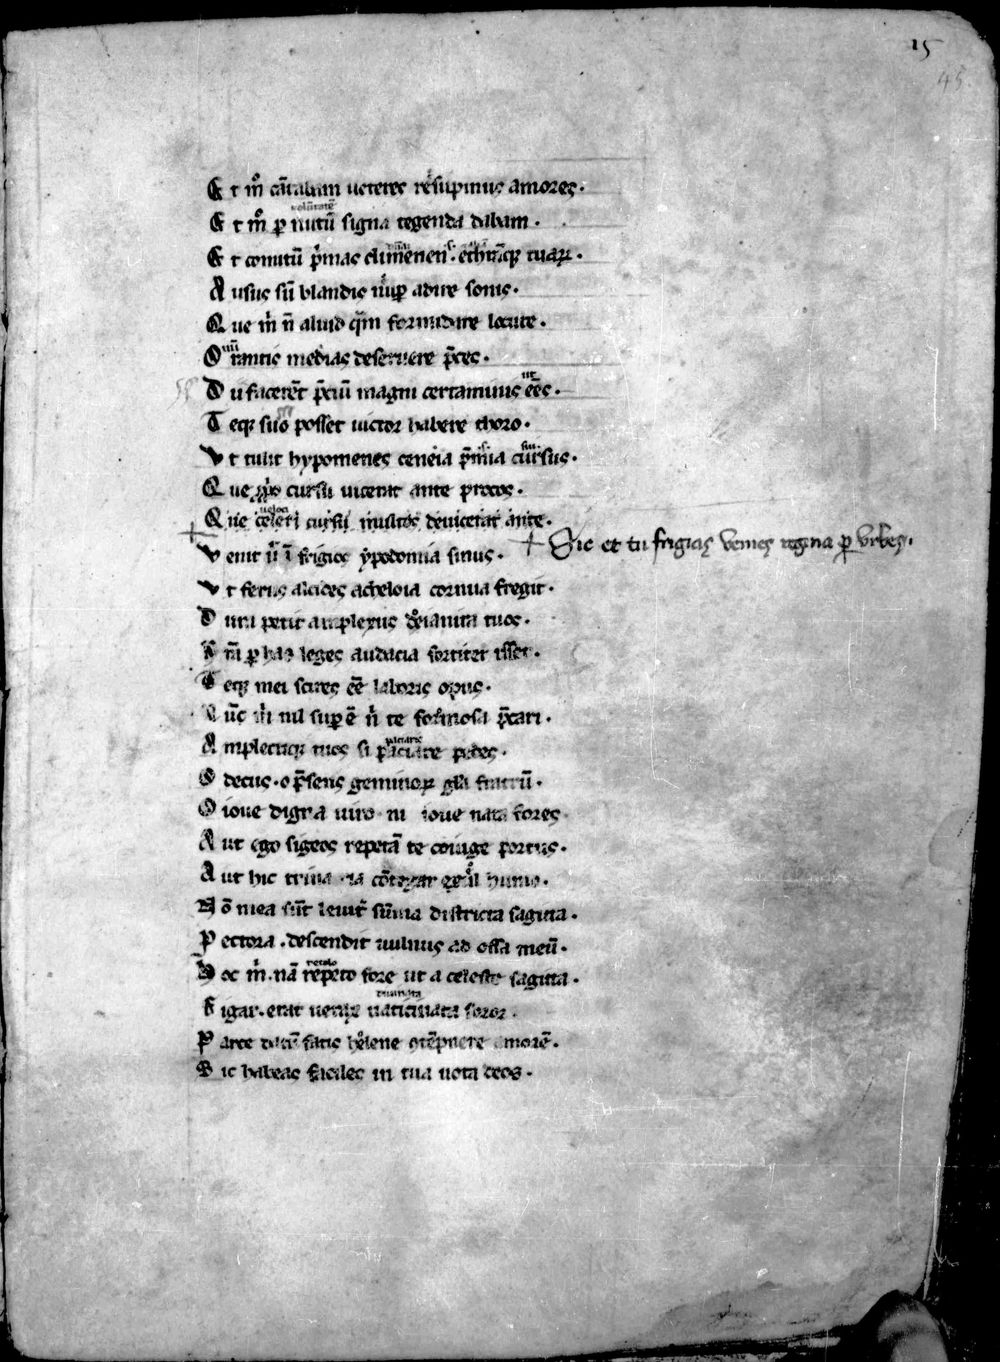 15
45
E t m̊ cātabam ueteres resupinus amores.
uolūtatē
E t m̊ ꝑ nutū signa tegenda dabam.
E t comitū p̄mas climeneń. ethrāq; tuaꝝ.
A usus sū blandis nuꝑ adire sonis.
Q ue m̍ n̄ aliud q̄m formidare locute.
O rantis medias deseruere p̄ces.
ut
D ii facerēt p̄ciū magni certaminis eēs.
T eq; suo posset uictor habere thoro.
V t tulit hypomenes ceneia p̄mia cursus.
Q ue cursu uicerat ante procos.
ueloci
Q ue celeri cursu multos deuicerat ante.
V enit ī frigios ypodomia sinus.
+ Sic et tu frigias venies regina ꝑ vrbes.
V t ferus alcides acheloia cornua fregit.
D um petit amplexus deianira tuos.
ꝑ has leges audacia fortiter isset.
T eq; mei scires eē laboris opus.
N ūc m̍ nil suꝑ ē n̍ te formosa p̄cari.
A mplectiq; tuos si paciare pedes.
O decus. o p̄sens geminoꝝ gl̄a fratrū.
O ioue digna uiro ni ioue nata fores
A ut ego sigeos repetā te coniuge portus.
A ut hic exul humo.
N ō mea sūt leuit̄ sūma districta sagitta.
P ectora. descendit uulnus ad ossa meū.
recolo
H oc m̍. nā repeto fore ut a celeste sagitta.
diuinata
F igar. erat uerax uaticinata soror.
P arce datū fatis helene 9tēpnere amorē.
S ic habeas faciles in tua uota deos.